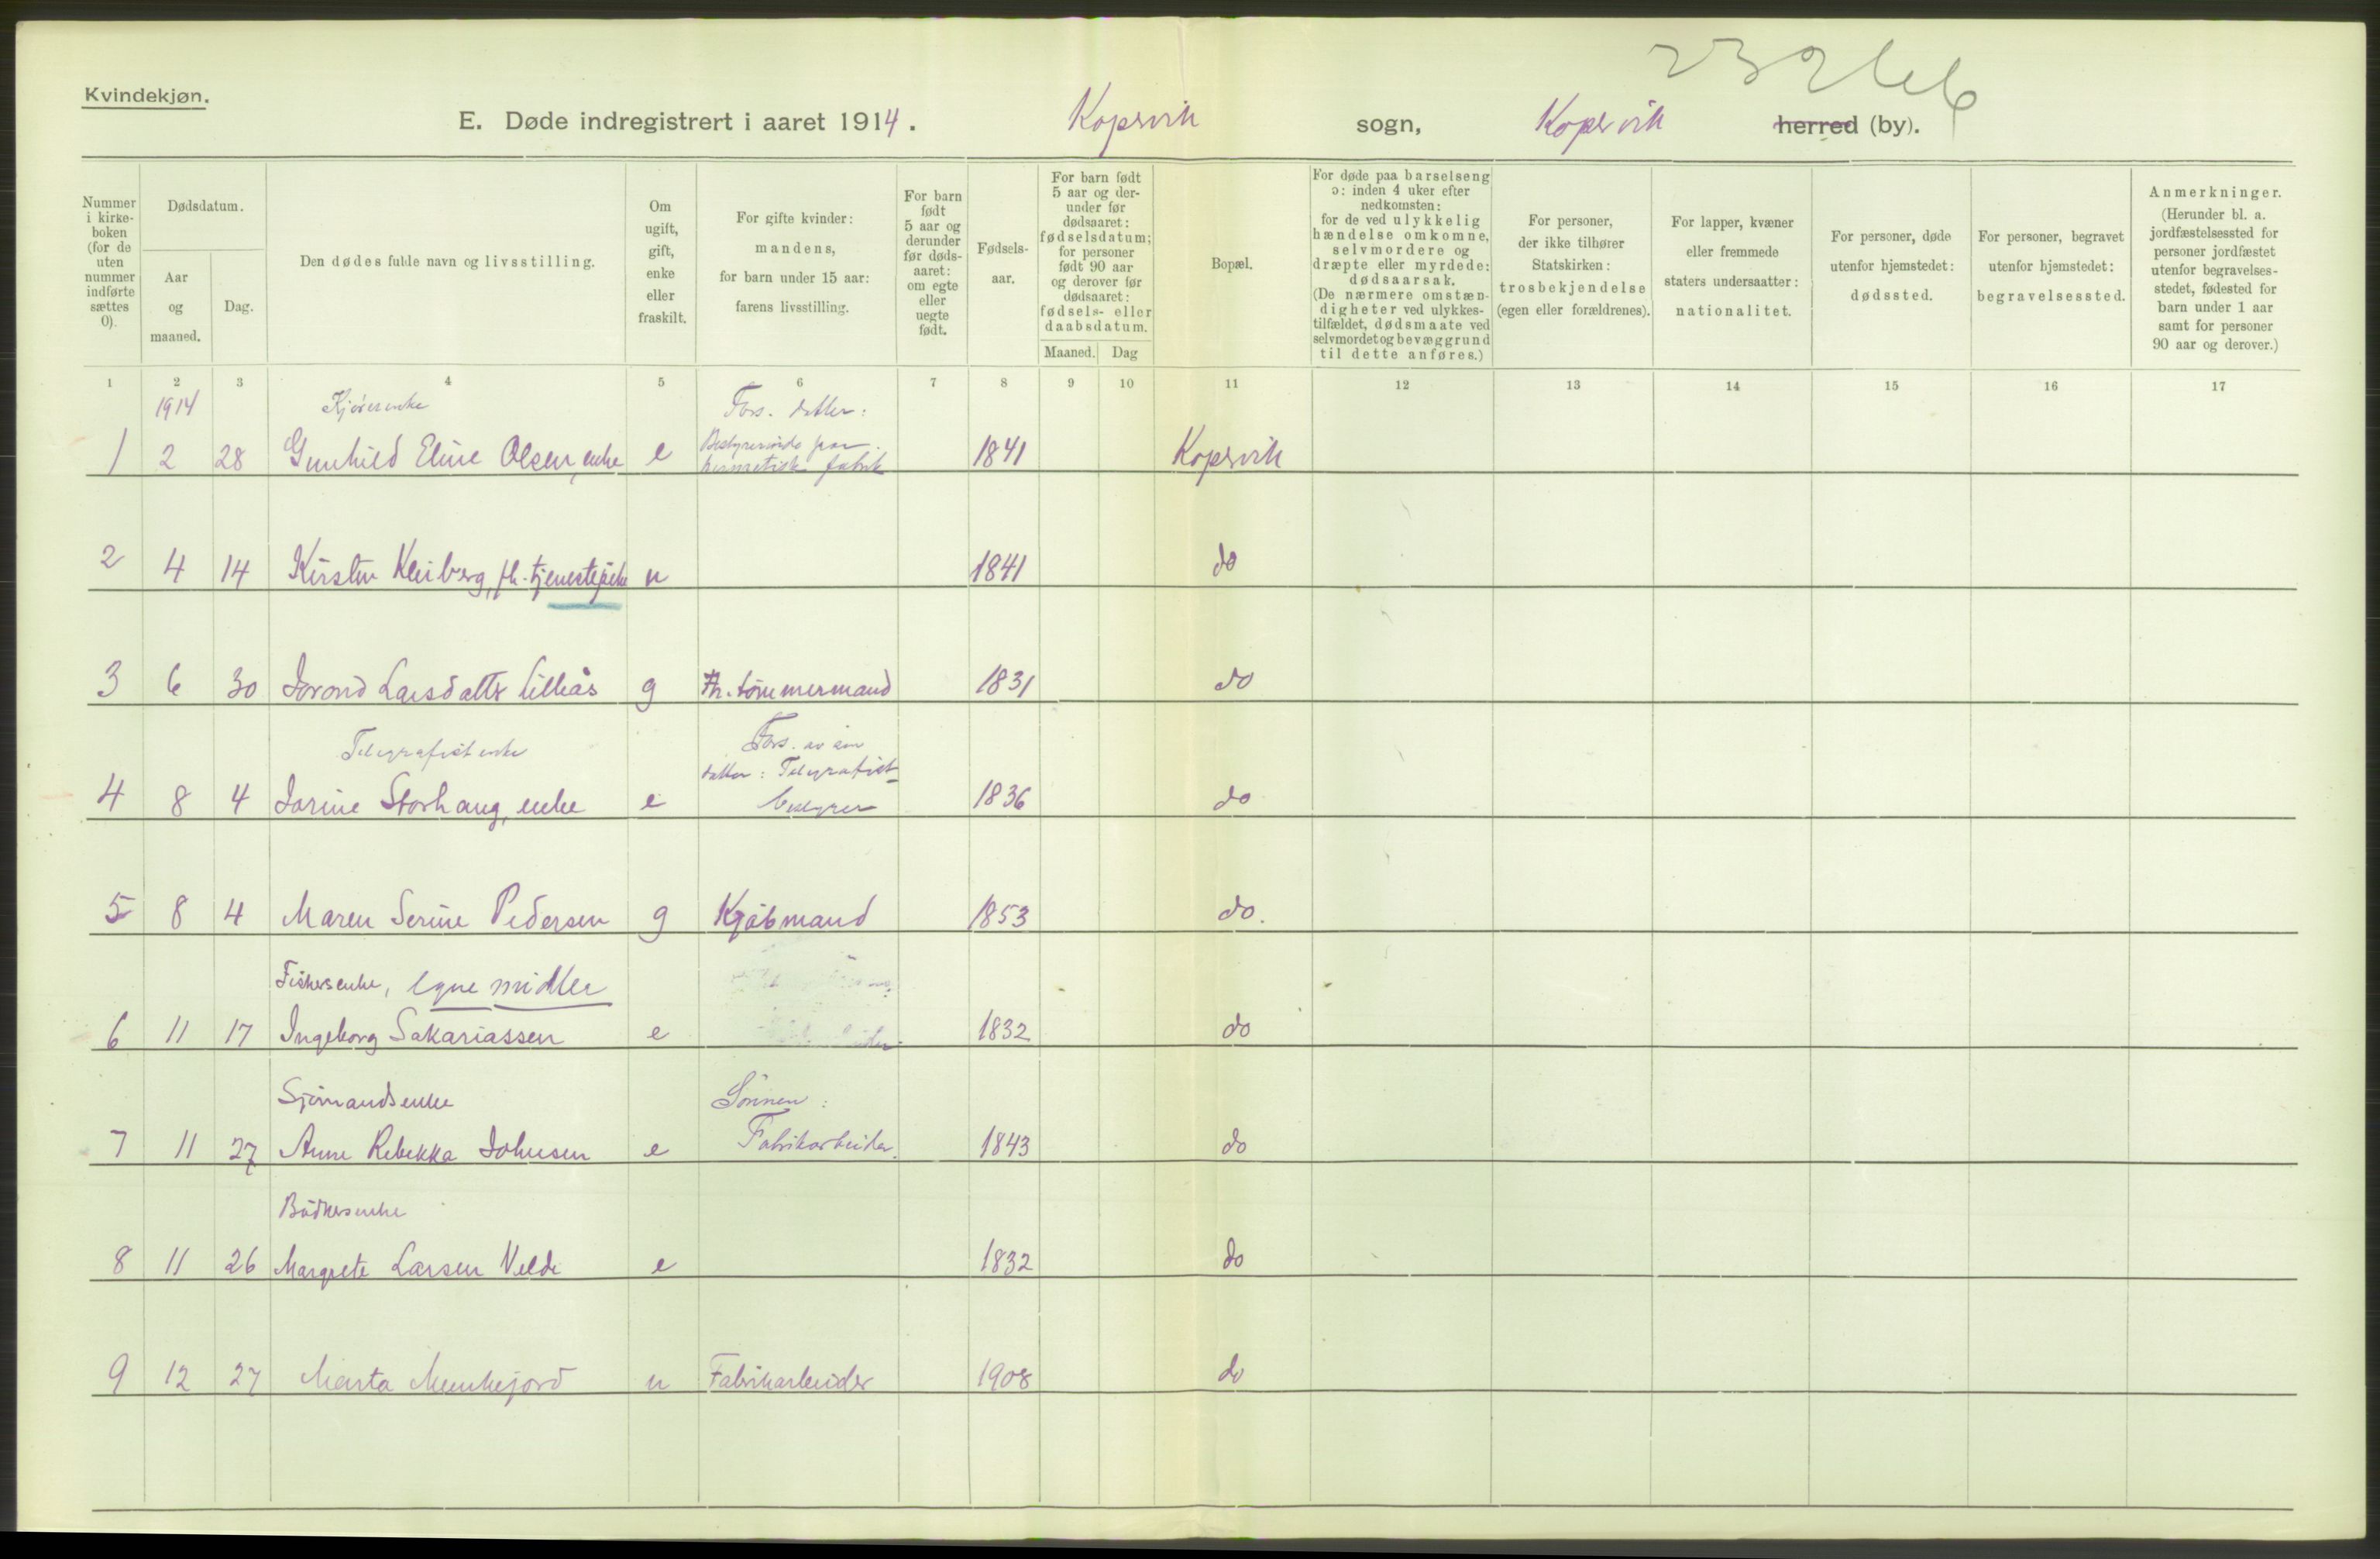 Kvindekjøn.
E. Døde indregistrert i aaret 1914. Kopervik sogn, Kopervik herred (by).
Nummer i kirke-boken (for de uten nummer indførte sættes 0).
Dødsdatum.
Aar og maaned.
Dag.
Den dødes fulde navn og livsstilling.
Om ugift, gift, enke eller fraskilt.
For gifte kvinder: mandens, for barn under 15 aar: farens livsstilling.
For barn født 5 aar og derunder før døds-aaret: om egte eller uegte født.
Fødsels-aar.
For barn født 5 aar og der-under før dødsaaret: fødselsdatum; for personer født 90 aar og derover før dødsaaret: fødsels- eller daabsdatum.
Maaned. Dag
Bopæl.
For døde paa barselseng ɔ: inden 4 uker efter nedkomsten: for de ved ulykkelig hændelse omkomne, selvmordere og dræpte eller myrdede: dødsaarsak. (De nærmere omstæn-digheter ved ulykkes-tilfældet, dødsmaate ved selvmordet og bevæggrund til dette anføres.)
For personer, der ikke tilhører Statskirken: trosbekjendelse (egen eller forældrenes).
For lapper, kvæner eller fremmede staters undersaatter: nationalitet.
For personer, døde utenfor hjemstedet: dødssted.
For personer, begravet utenfor hjemstedet: begravelsessted.
Anmerkninger. (Herunder bl. a. jordfæstelsessted for personer jordfæstet utenfor begravelses-stedet, fødested for barn under 1 aar samt for personer 90 aar og derover.)
1 2 3 4 5 6 7 8 9 10 11 12 13 14 15 16 17
1914 Kjørerenke Fors. datter:
Bestyrerinde paa
1 2 28 Gunhild Eline Olsen, enke e hermetisk fabrik 1841 Kopervik
2 4 14 Kirsten Kleiberg, fh. tjenestepike u 1841 do
3 6 30 Jorond Larsdatter Lilleås g Fh. tømmermand 1831 do
Telegrafistenke Fors. av sin
datter: Telegrafist-
4 8 4 Jorine Storhaug, enke e bestyrer 1836 do
5 8 4 Maren Serine Pedersen g Kjøbmand 1853 do.
Fiskersenke, egne midler
6 11 17 Ingeborg Sakariassen e 1832 do
Sjømandsenke Sønnen:
7 11 27 Anne Rebekka Johnsen e Fabrikarbeider. 1843 do
Bødkersenke
8 11 26 Margrete Larsen Velde e 1832 do
9 12 27 Marta Munkejord u Fabrikarbeider 1908 do